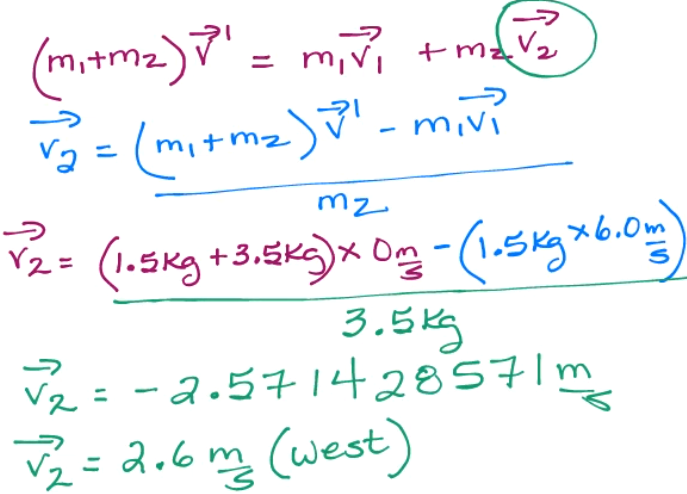 (m₁+m₂)v⃗' = m₁v⃗₁ + m₂v⃗₂
v⃗₂ = (m₁+m₂)v⃗' - m₁v⃗₁
m₂
v⃗₂ = (1.5kg+3.5kg)× 0 m/s - (1.5kg×6.0 m/s)
3.5kg
v⃗₂ = -2.571428571 m/s
v⃗₂ = 2.6 m/s (west)